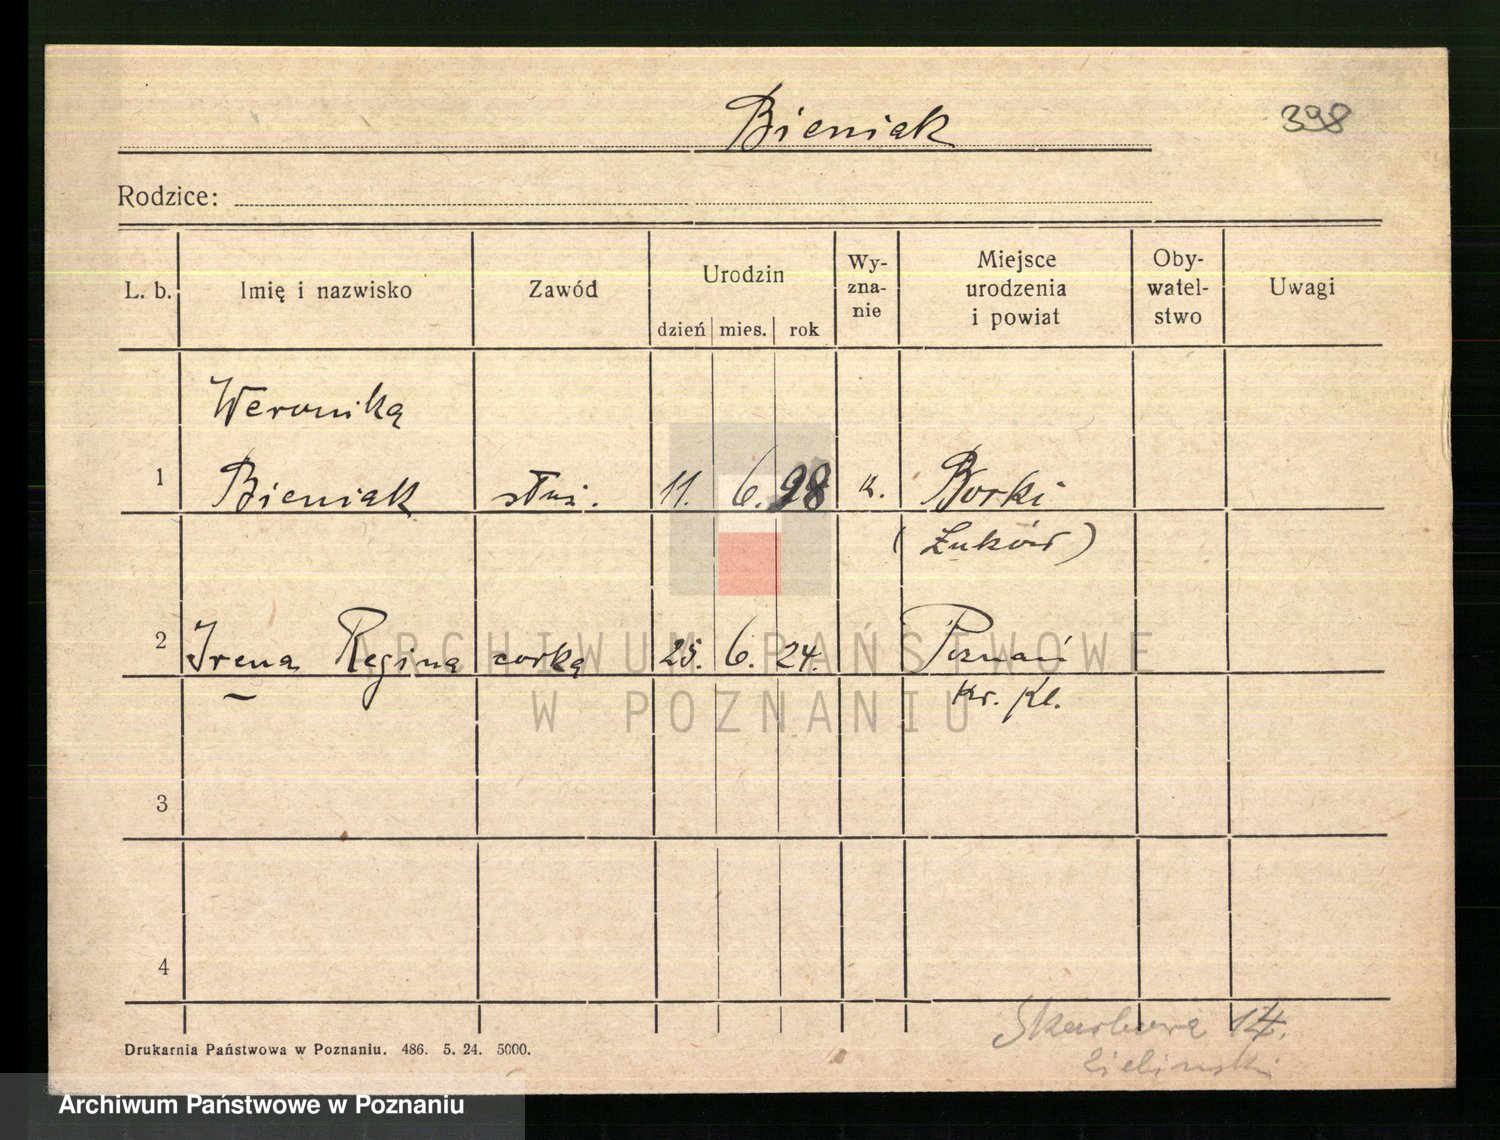 Bieniak
398
Rodzice:
L. b. Imię i nazwisko Zawód Urodzin dzień mies. rok Wy-zna-nie Miejsce urodzenia i powiat Oby-watel-stwo Uwagi
Weronika
1 Bieniak służ. 11. 6. 98 k. Borki
(Łuków)
2 Irena Regina corka 25. 6. 24. Poznań
kr. kl.
3
4
ARCHIWUM PAŃSTWOWE
W POZNANIU
Skarbowa 14.
Zieliński
Drukarnia Państwowa w Poznaniu. 486. 5. 24. 5000.
Archiwum Państwowe w Poznaniu